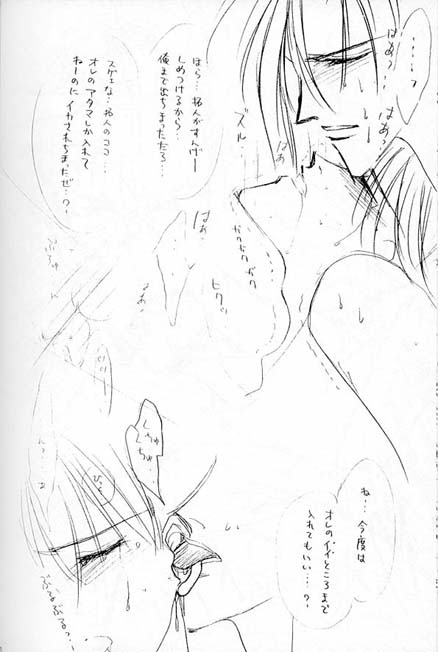 ……っ
はぁっ
はぁっ
ほら…拓人がすんげー
しめつけるから…
俺まで出ちまっただろ…
ズル…
はぁ
スゲェな…拓人のココ…
オレのアタマしか入れて
ねーのにイカされちまったぜ…？
はぁ
ガクガクガク
ヒクッ
ね…今度は
オレのイイところまで
入れてもいい…？
くちゅ
くちゅ…
ひっ
ぶるぶるっ…